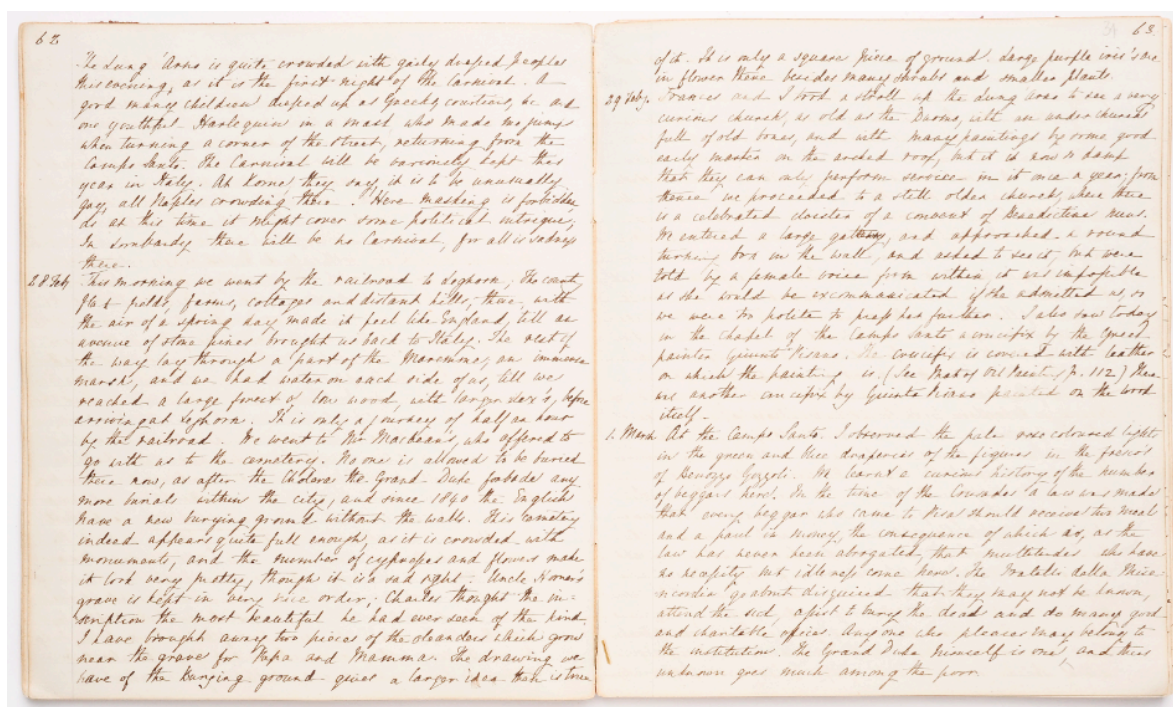 62
The Lung' Arno is quite crowded with gaily dressed peoples
this evening, as it is the first night of the Carnival. A
good many children dressed up as Greeks, courtiers, &c and
one youthful Harlequin in a mask, who made me jump
when turning a corner of the street, returning from the
Campo Santo. The Carnival will be variously kept this
year in Italy. At Rome, they say, it is to be unusually
gay, all Naples crowding there. Here masking is forbidden
as at this time it might cover some political intrigue;
In Lombardy there will be no Carnival, for all is sadness
there.
28 Feby This morning we went by the railroad to Leghorn; The country
flat fields, farms, cottages and distant hills; these with
the air of a spring day made it feel like England, till an
avenue of stone pines brought us back to Italy. The rest of
the way lay through a part of the Maremma, an immense
marsh, and we had water on each side of us, till we
reached a large forest of low wood, with larger before
arriving at Leghorn. It is only a journey of half an hour
by the railroad. We went to Mr Macbean's, who offered to
go with us to the cemetery. No one is allowed to be buried
there now, as after the Cholera the Grand Duke forbade any
more burials within the city, and since 1840 the English
have a new burying ground without the walls. This cemetery
indeed appears quite full enough, as it is crowded with
monuments, and the number of cypresses and flowers make
it look very pretty, though it is a sad sight. Uncle Horner's
grave is kept in very nice order; Charles thought the in-
scription the most beautiful he had ever seen of the kind.
I have brought away two pieces of the oleanders which grow
near the grave for Papa and Mamma. The drawing we
have of the Burying ground gives a larger idea than is true
63
of it. It is only a square piece of ground. Large purple iris's are
in flower there besides many shrubs and smaller plants.
29 Feby. Frances and I took a stroll up the Lung' Arno to see a very
curious church, as old as the Duomo, with an under church
full of old bones, and with many paintings by some good
early master on the arched roof, but it is now so damp
that they can only perform service in it once a year; from
thence we proceeded to a still older church, where there
is a celebrated cloister of a convent of Benedictine nuns.
We entered a large gallery, and approached a round
turning box in the wall, and asked to see it, but were
told by a female voice from within it was impossible
as she would be excommunicated if she admitted us, so
we were too polite to press her further. I also saw today
in the chapel of the Campo Santo a crucifix by the Greek
painter Giunto Pisano. The crucifix is covered with leather
on which the painting is. (See Hist of Oil Painting p. 112) There
was another crucifix by Giunto Pisano painted on the wood
itself.
1. March At the Campo Santo. I observed the pale rose coloured lights
in the green and blue draperies of the figures in the frescos
of Benozzo Gozzoli. We learnt a curious history of the number
of beggars here. In the time of the Crusades a law was made
that every beggar who came to Pisa should receive two meals
and a paul in money, the consequence of which is, as the
law has never been abrogated, that multitudes who have
no necessity but idleness come here. The Fratelli della Mise-
ricordia go about disguised that they may not be known,
attend the sick, assist to bury the dead and do many good
and charitable offices. Any one who pleases may belong to
the institution. The Grand Duke himself is one, and thus
unknown goes much among the poor